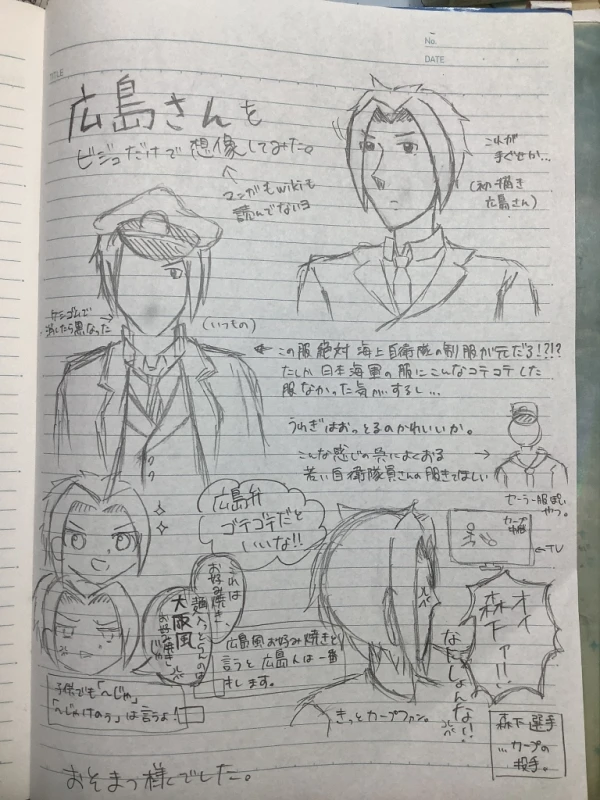 No.
DATE
TITLE
広島さんを
ビジュだけで想像してみた。
マンガもwikiも
読んでないヨ
これが
(初描き
広島さん)
ケシゴムで
消したら黒なった
(いつもの)
← この服絶対海上自衛隊の制服が元だろ!?!?
たしか日本海軍の服にこんなコテコテした
服なかった気がするし…
うわぎはおっとるのかわいいか。
こんな感じの呉によくおる
若い自衛隊員さんの服きてほしい
セーラー服ぽい
やつ。
広島弁
ゴテゴテだと
いいな!!
これは
お好み焼き、
麺入っとらんのは
大阪風
お好み焼きじゃ
広島風お好み焼きと
言うと広島人は一番
キレします。
子供でも「~じゃ」
「~じゃけのぅ」は言うよ!
カープ
中継
←TV
オイ
森下ァ!!
なにしよんな!!
きっとカープファン。
森下選手
…カープの
投手。
おそまつ様でした。